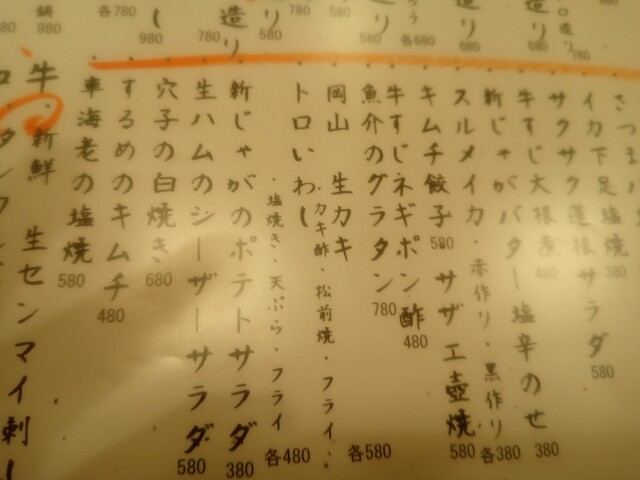 ロ造り 780
造り 580
造り 680
各680
り 580
780
り 580
造り 780
し 980
各780
鍋 980
さつま
イカ下足塩焼 380
サクサク蓮根サラダ 580
牛すじ大根煮 480
新じゃがバター塩辛のせ 380
スルメイカ・赤作り・黒作り 各380
キムチ餃子 580
サザエ壺焼 580
牛すじネギポン酢 480
魚介のグラタン 780
岡山 生カキ 各580
・カキ酢・松前焼・フライ・
トロいわし
・塩焼き・天ぷら・フライ 各480
新じゃがのポテトサラダ 380
生ハムのシーザーサラダ 580
穴子の白焼き 680
するめのキムチ 480
車海老の塩焼 580
牛・新鮮 生センマイ刺し